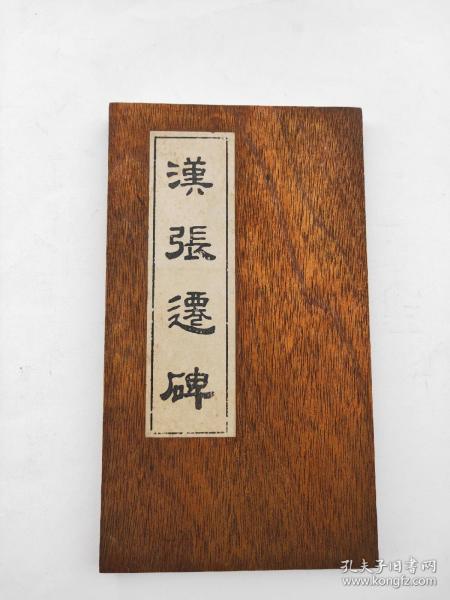 漢張遷碑
孔夫子旧书网
www.kongfz.com